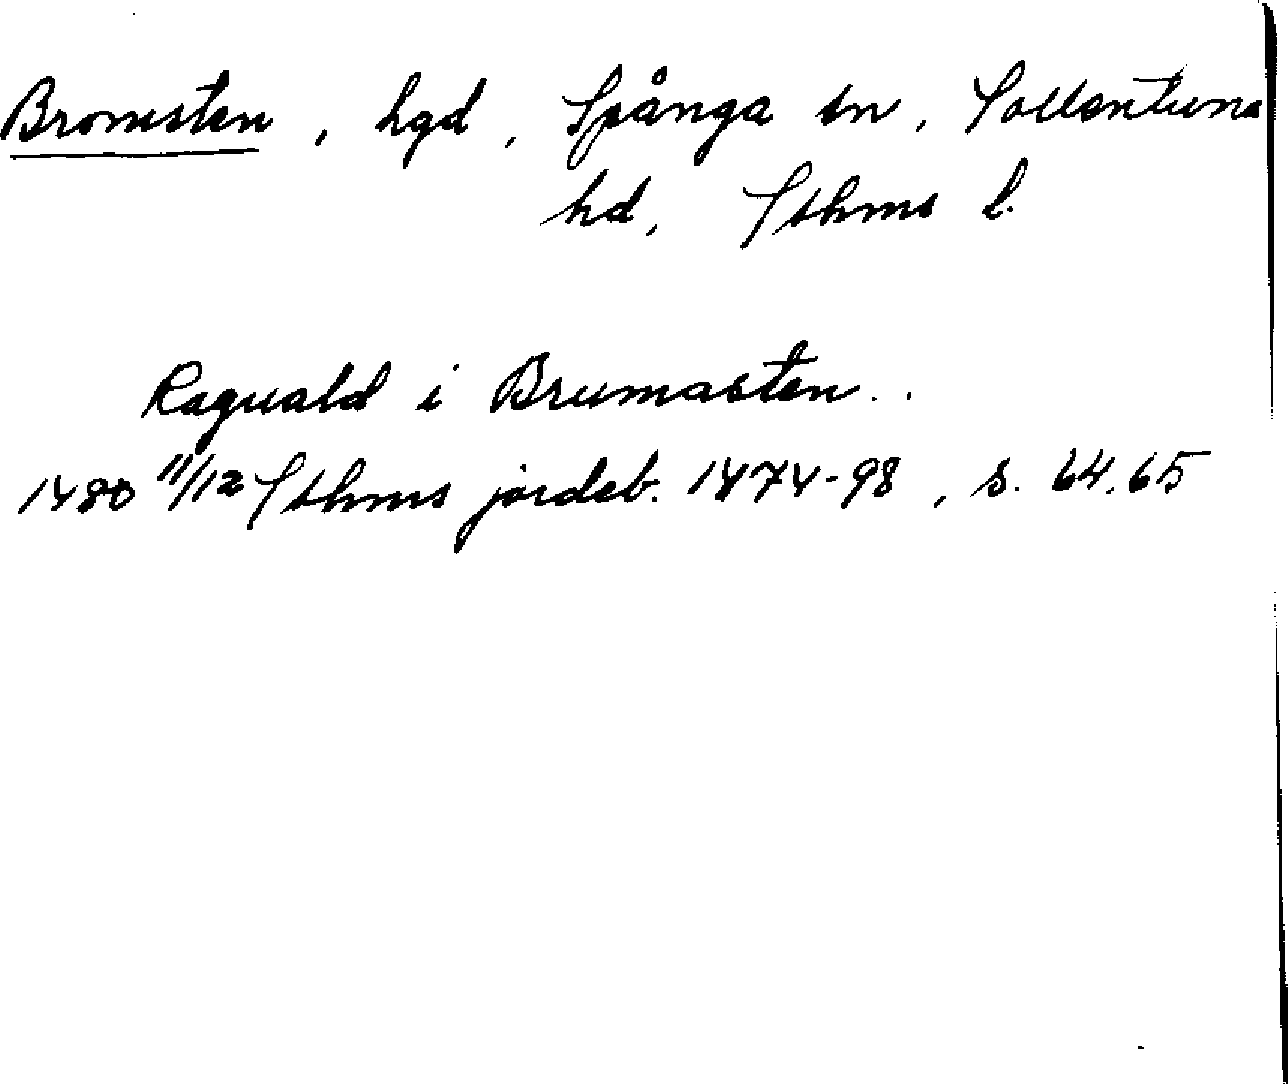 Bromsten, hgd, Spånga sn, Sollentuna
hd, Sthms l.
Raguald i Brumasten..
1480 11/12 Sthms jordeb. 1474-98, s. 64.65